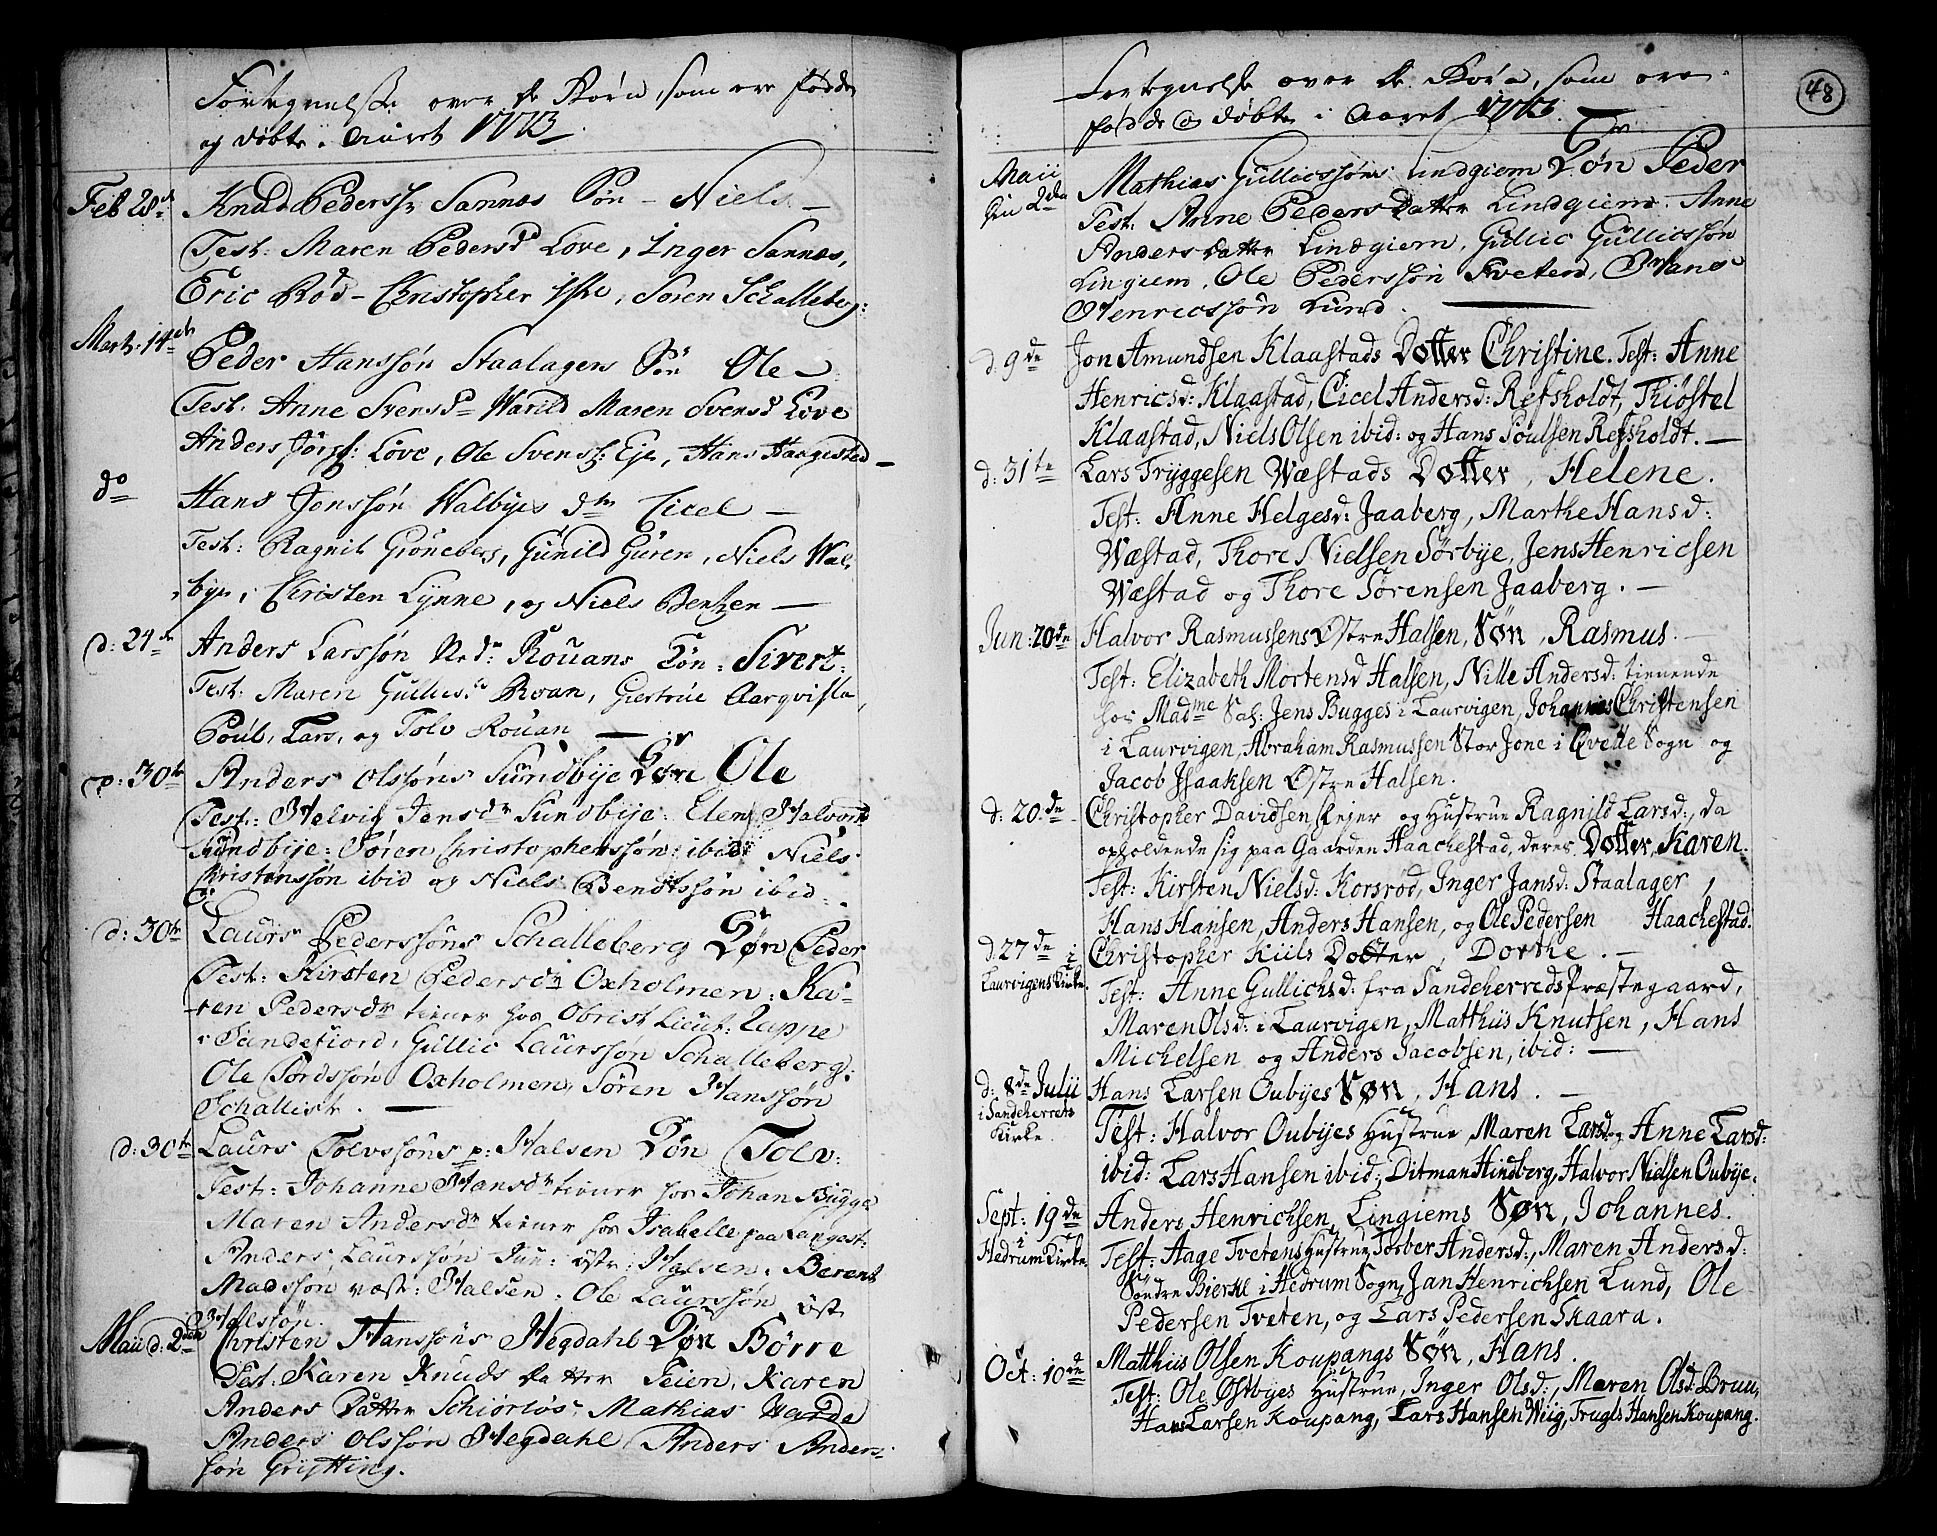 Fortegnelse over de Börn, som ere fødde
og döbte i Aaret 1773.
Feb 28de
Knud Peders Sr Sannes Sön - Niels -
Test: Maren Pedersd Love, Inger Sannes,
Eric Röd - Christopher Iske, Sören Schalleberg:
Marti: 14de
Peder Hanssön Staalagers Sön Ole -
Test. Anne Svensd Warild Maren Svensd Love
Anders Jörgs: Love, Ole Svens: Eje, Hans Haagestad -
do
Hans Jonssön Walbyes dtr Cicel -
Test: Ragnil Gröneberg, Gunild Guren, Niels Wal-
bye, Christen Lynne, og Niels Bentzen -
d: 24de
Anders Larssön Ned: Rouans Sön: Sivert:
Test: Maren Gullics: Roan, Giertrue Aarqvisla,
Poul, Lars, og Tolv Rouan -
p: 30te
Anders Olssöns Sundbije Sön Ole
Test: Helvig Jensdr Sundbije: Elen Halvors
Sundbije: Sören Christopherssön: ibid: Niels
Christenssön ibid og Niels Bendtssön ibid:
d: 30te
Laurs Pederssöns Schalleberg Sön Peder
Test: Kirsten Pedersdr Oxholmen: Ka-
ren Pedersdr tiener hos Obrist Lieut: Zeppe
i Sandefiord, Gullic Laurssön Schalleberg:
Ole Tordssön Oxholmen, Sören Hanssön
Schallist. -
d: 30te
Laurs Tolvssöns p: Halsen Sön Tolv:
Test: Johanne Hansdr tiener hos Johan Bugge
Maren Andersdr tiener hos Isabelle paa Langest:
Anders Laurssön Jun: östr: Halsen. Berent
Madssön vest: Halsen: Ole Laurssön öst
Halssön.
Maii d: 2den
Christen Hanssöns Hegdahl Sön Börre
Test: Karen Knuds Datter Feien, Karen
Anders Datter Schiörlös: Mathias Warde
Anders Olssön Hegdahl, Anders Anders-
sön Gristting.
48
Fortegnelse over de Börn, som ere
födde og döbte i Aaret 1773.
Maii
din 2den
Mathias Gullicssöns Lindgiem Sön Peder
Test: Anne Peders Datter Lindgiem. Anne
Anders Datter Lindgiem, Gullic Gullicssön
Lingiem, Ole Pederssön Tveten, Hans
Henricssön Lund. -
d: 9de
Jon Amundsen Klaastads Dotter Christine. Test: Anne
Henricsd: Klaastad, Cicel Andersd: Refsholdt, Thiöstel
Klaastad, Niels Olsen ibid: og Hans Poulsen Refsholdt. -
d: 31te
Lars Tryggesen Wæstads Dotter, Helene.
Test: Anne Helgesd: Jaaberg, Marthe Hansd:
Wæstad, Thore Nielsen Sørbye, Jens Henricsen
Wæstad og Thore Sørensen Jaaberg. -
Jun: 20de
Halvor Rasmussens Østre Halsen, Søn, Rasmus. -
Test: Elizabeth Mortensd Halsen, Nille Andersd: tienende
hos Madme Sal: Jens Bugges i Laurvigen, Johannes Christensen
i Laurvigen, Abraham Rasmussen Stor Jone i Qvelle Sogn og
Jacob Isaaksen Østre Halsen.
d: 20de
Christopher Davidsen Lejer og Hustrue Ragnild Larsd:, da
opholdende sig paa Gaarden Haachestad, deres Dotter, Karen.
Test: Kirsten Nielsd: Korsrød, Inger Jansd: Staalager,
Hans Hansen, Anders Hansen, og Ole Pedersen Haachestad.
d: 27de i
Laurvigens Kirke.
Christopher Kiils Dotter, Dorthe. -
Test: Anne Gullichsd: fra Sandeherreds Præstegaard,
Maren Olsd: i Laurvigen, Matthiis Knutsen, Hans
Michelsen og Anders Jacobsen, ibid: -
d: 8de Julii
i Sandeherrets
Kirke
Hans Larsen Oubyes Søn, Hans. -
Test: Halvor Oubyes Hustrue, Maren Larsd og Anne Larsd:
ibid: Lars Hansen ibid:, Ditman Hindberg, Halvor Nielsen Oubye.
Sept: 19de
i
Hedrum Kirke.
Anders Henrichsen Lingiems Søn, Johannes.
Test: Aage Tvetens Hustrue Torber Andersd:, Maren Andersd:
Søndre Bierke i Hedrum Sogn, Jan Henrichsen Lund, Ole
Pedersen Tveten, og Lars Pedersen Skaara.
Oct: 10de
Matthiis Olsen Koupangs Søn, Hans.
Test: Ole Østbyes Hustrue, Inger Olsd:, Maren Olsd: Bruu,
Hans Larsen Koupang, Lars Hansen Wiig, Trugls Hansen Koupang.